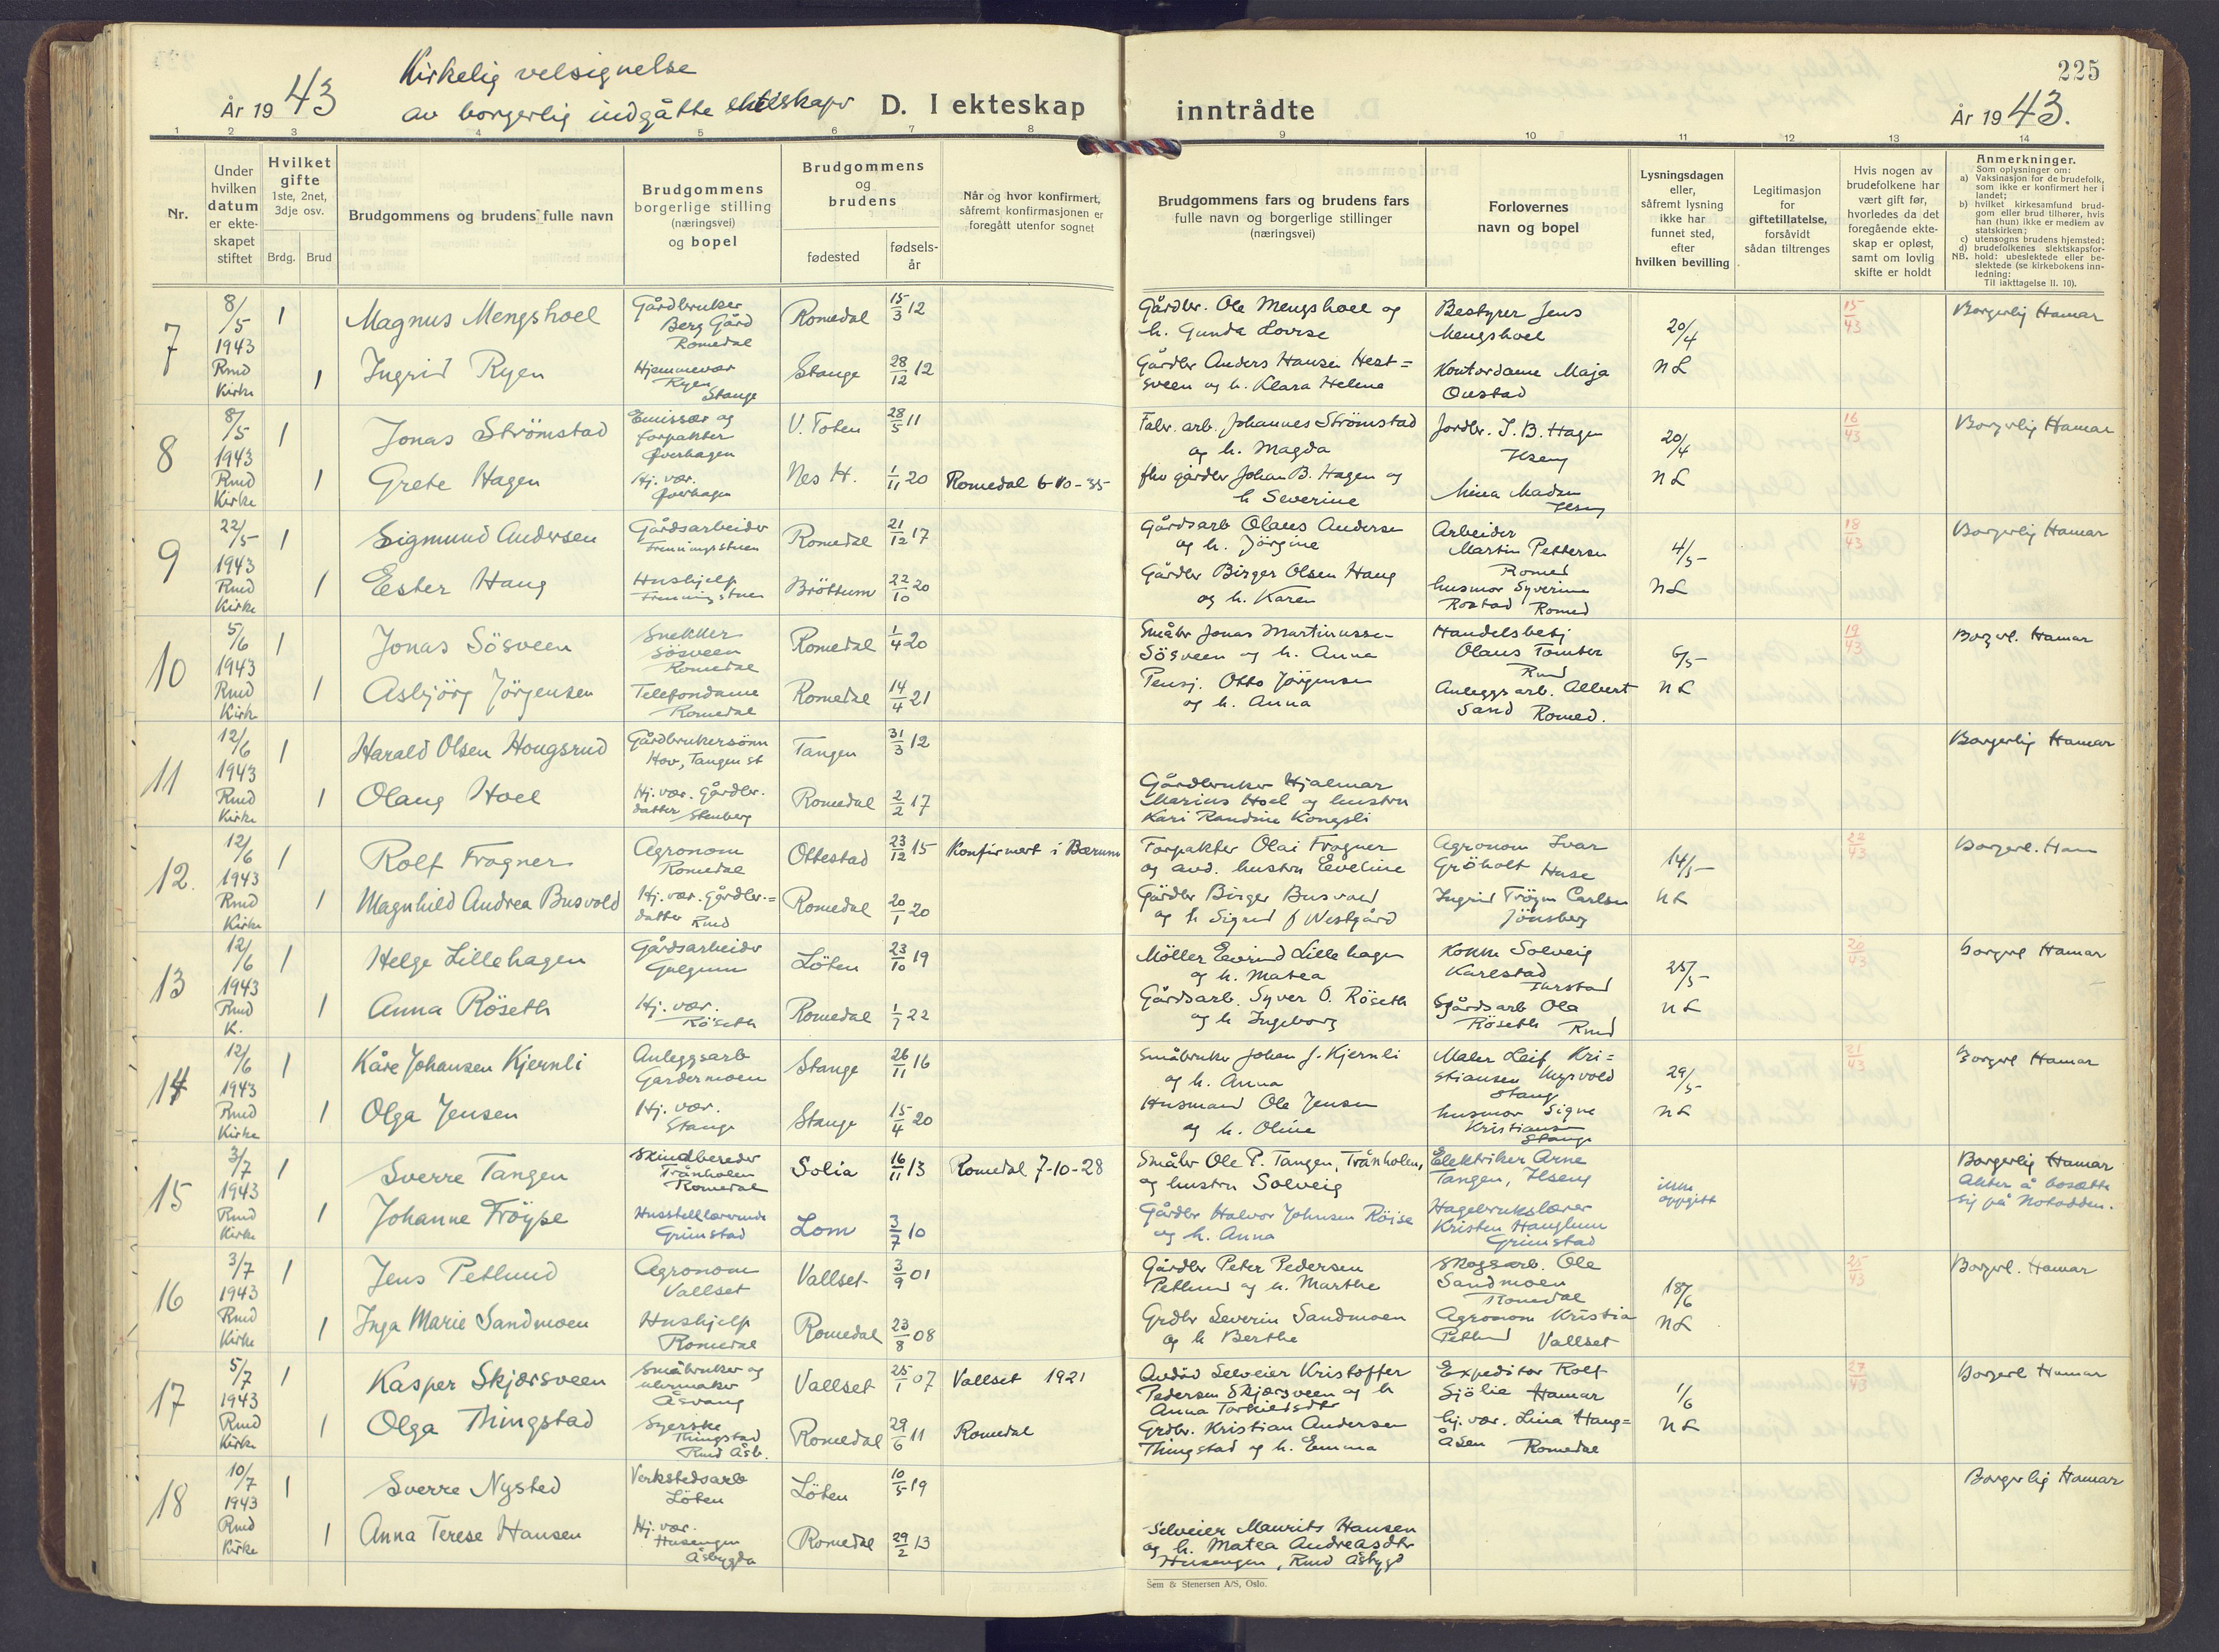 År 19 43
Kirkelig velsignelse
av borgerlig indgåtte ekteskaper
D. I ekteskap
inntrådte
225
År 19 43.
1 2 3 4 5 6 7 8 9 10 11 12 13 14
Nr.
Under hvilken datum er ekte-skapet stiftet
Hvilket gifte 1ste, 2net, 3dje osv.
Brdg. Brud
Brudgommens og brudens fulle navn
Brudgommens borgerlige stilling (næringsvei) og bopel
Brudgommens og brudens
fødested
fødsels-år
Når og hvor konfirmert, såfremt konfirmasjonen er foregått utenfor sognet
Brudgommens fars og brudens fars fulle navn og borgerlige stillinger (næringsvei)
Forlovernes navn og bopel
Lysningsdagen eller, såfremt lysning ikke har funnet sted, efter hvilken bevilling
Legitimasjon for giftetillatelse, forsåvidt sådan tiltrenges
Hvis nogen av brudefolkene har vært gift før, hvorledes da det foregående ekte-skap er opløst, samt om lovlig skifte er holdt
Anmerkninger.
Som oplysninger om:
a) Vaksinasjon for de brudefolk, som ikke er konfirmert her i landet;
b) hvilket kirkesamfund brud-gom eller brud tilhører, hvis han (hun) ikke er medlem av statskirken;
c) utensogns brudens hjemsted;
d) brudefolkenes slektskapsfor-
NB. hold: ubeslektede eller be-slektede (se kirkebokens inn-ledning:
Til iakttagelse II. 10).
7
8/5 1943 Rmd Kirke
1 Magnus Mengshoel
Gårdbruker Berg Gård Romedal
Romedal 15/3 12
Gårdbr. Ole Mengshoel og h. Gunda Lovise
Bestyrer Jens Mengshoel
20/4 nL
15/43
Borgerlig Hamar
1 Ingrid Ryen
Hjemmevær Ryen Stange
Stange 28/12 12
Gårdbr Anders Hansen Hest= sveen og h. Klara Helene
Kontordame Maja Onstad
8
8/5 1943 Rmd Kirke
1 Jonas Strömstad
Emissær og forpakter Øverhagen
V. Toten 28/5 11
Fabr. arb. Johannes Strömstad og h. Magda
Jordbr. J. B. Hagen Ilseng
20/4 nL
16/43
Borgerlig Hamar
1 Grete Hagen
Hj. vær. Øverhagen
Nes H. 1/11 20 Romedal 6-10-35
fhv gårdbr Johan B. Hagen og h Severine
9
22/5 1943 Rmd Kirke
1 Sigmund Andersen
Gårdsarbeider
Romedal 21/12 17
Gårdsarb Olaus Andersen og h. Jörgine
Arbeider Martin Pettersen Romed
4/5 nL
18/43
Borgerlig Hamar
1 Ester Haug
Hushjelp
Bröttum 22/10 20
Gårdbr Birger Olsen Haug og h. Karen
husmor Syverine Rostad Romed
10
5/6 1943 Rmd Kirk
1 Jonas Sösveen
Snekker Sösveen Romedal
Romedal 1/4 20
Småbr Jonas Martinusse- Sösveen og h. Anna
Handelsbetj Olaus Tomter Rmd
6/5 nL
19/43
Borgerl. Hamar
1 Asbjörg Jörgensen
Telefondame Romedal
Romedal 14/4 21
Pensj. Otto Jörgensen og h. Anna
Anleggsarb. Albert Sand Romed.
11
12/6 1943 Rmd Kirke
1 Harald Olsen Hougsrud
Gårdbrukersönn Hov, Tangen st
Tangen 31/3 12
Borgerlig Hamar
1 Olaug Hoel
Hj. vær. Gårdbr. datter Stenberg
Romedal 2/2 17
Gårdbruker Hjalmar Marius Hoel og hustru Kari Randine Kongsli
12.
12/6 1943 Rmd Kirke
1 Rolf Frogner
Agronom Romedal
Ottestad 23/12 15 Konfirmert i Bærum
Forpakter Olai Frogner og avd. hustru Eveline
Agronom Ivar Gröholt Huse
14/5 nL
22/43
Borgerl. Ham
1 Magnhild Andrea Busvold
Hj. vær. Gårdbr.= datter Rmd
Romedal 20/1 20
Gårdbr Birger Busvold og h Sigrid f Westgård
Ingrid Fröyn Carlsen Jönsberg
13
12/6 1943 Rmd K.
1 Helge Lillehagen
Gårdsarbeider Gulgum
Löten 23/10 19
Möller Eivind Lillehagen og h. Matea
Kokke Solveig Karlstad
25/5 nL
20/43
Borgerl Hamar
1 Anna Röseth
Hj. vær. Röseth
Romedal 1/7 22
Gårdsarb. Syver O. Röseth og h Ingeborg
Gårdsarb Ola Röseth Rmd
14
12/6 1943 Rmd Kirke
1 Kåre Johansen Kjernli
Anleggsarb Gardermoen
Stange 26/11 16
Småbruker Johan J. Kjernli og h. Anna
Maler Leif Kri= stiansen Myrvold Stange
29/5 nL
21/43
Borgerl Hamar
1 Olga Jensen
Hj. vær. Stange
Stange 15/4 20
Husmand Ole Jensen og h. Oline
husmor Signe Kristiansen Stange
15
3/7 1943 Rmd Kirke
1 Sverre Tangen
Skindbereder Trånholen Romedal
Solia 16/11 13 Romedal 7-10-28
Småbr Ole P. Tangen, Trånholen, og hustru Solveig
Elektriker Arne Tangen, Ilseng
ikke oppgitt
Borgerlig Hamar Akter å bosætte sig på Notodden.
1 Johanne Fröyse
Husstellærerinde Grimstad
Lom 3/7 10
Gårdbr Halvor Johnsen Röise og h. Anna
Hagebrukslærer Kristen Hauglum Grimstad
16
3/7 1943 Rmd Kirke
1 Jens Petlund
Agronom Vallset
Vallset 3/9 01
Gårdbr Peter Pedersen Petlund og h. Marthe
Skogsarb. Ole Sandmoen Romedal
18/6 nL
25/43
Borgerl. Hamar
1 Inga Marie Sandmoen
Hushjelp Romedal
Romedal 23/8 08
Grdbr Severin Sandmoen og h Berthe
Agronom Kristia Petlund Vallset
17
5/7 1943 Rmd Kirke
1 Kasper Skjærsveen
Småbruker og urmaker Åsvang
Vallset 25/1 07 Vallset 1921
Avdöd Selveier Kristoffer Pedersen Skjærsveen og h Anna Torkildsdtr
Expeditør Rolf Sjölie Hamar
1/6 nL
27/43
Borgerl Hamar
1 Olga Thingstad
Syerske Thingstad Rmd Åsb.
Romedal 29/6 11 Romedal
Grdbr. Kristian Andersen Thingstad og h. Emma
hj. vær. Lina Haug= Åsen Romedal
18
10/7 1943 Rmd Kirke
1 Sverre Nysted
Verkstedsarb Löten
Löten 10/5 19
Borgerlig Hamar
1 Anna Terese Hansen
Hj. vær. Husengen Åsbygda
Romedal 29/2 13
Selveier Maurits Hansen og h. Matea Andreasdtr Husengen, Rmd Åsbygd
Sem & Stenersen A/S, Oslo.